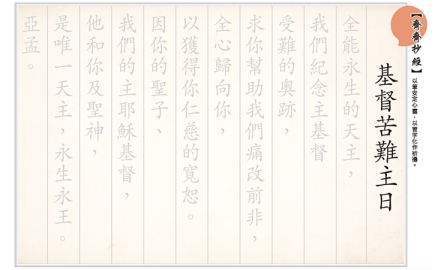 【齊齊抄經】
以筆安定心靈，以習字化作祈禱。
基督苦難主日
全能永生的天主，
我們紀念主基督
受難的奧跡，
求你幫助我們痛改前非，
全心歸向你，
以獲得你仁慈的寬恕。
因你的聖子、
我們的主耶穌基督，
他和你及聖神，
是唯一天主，永生永王。
亞孟。